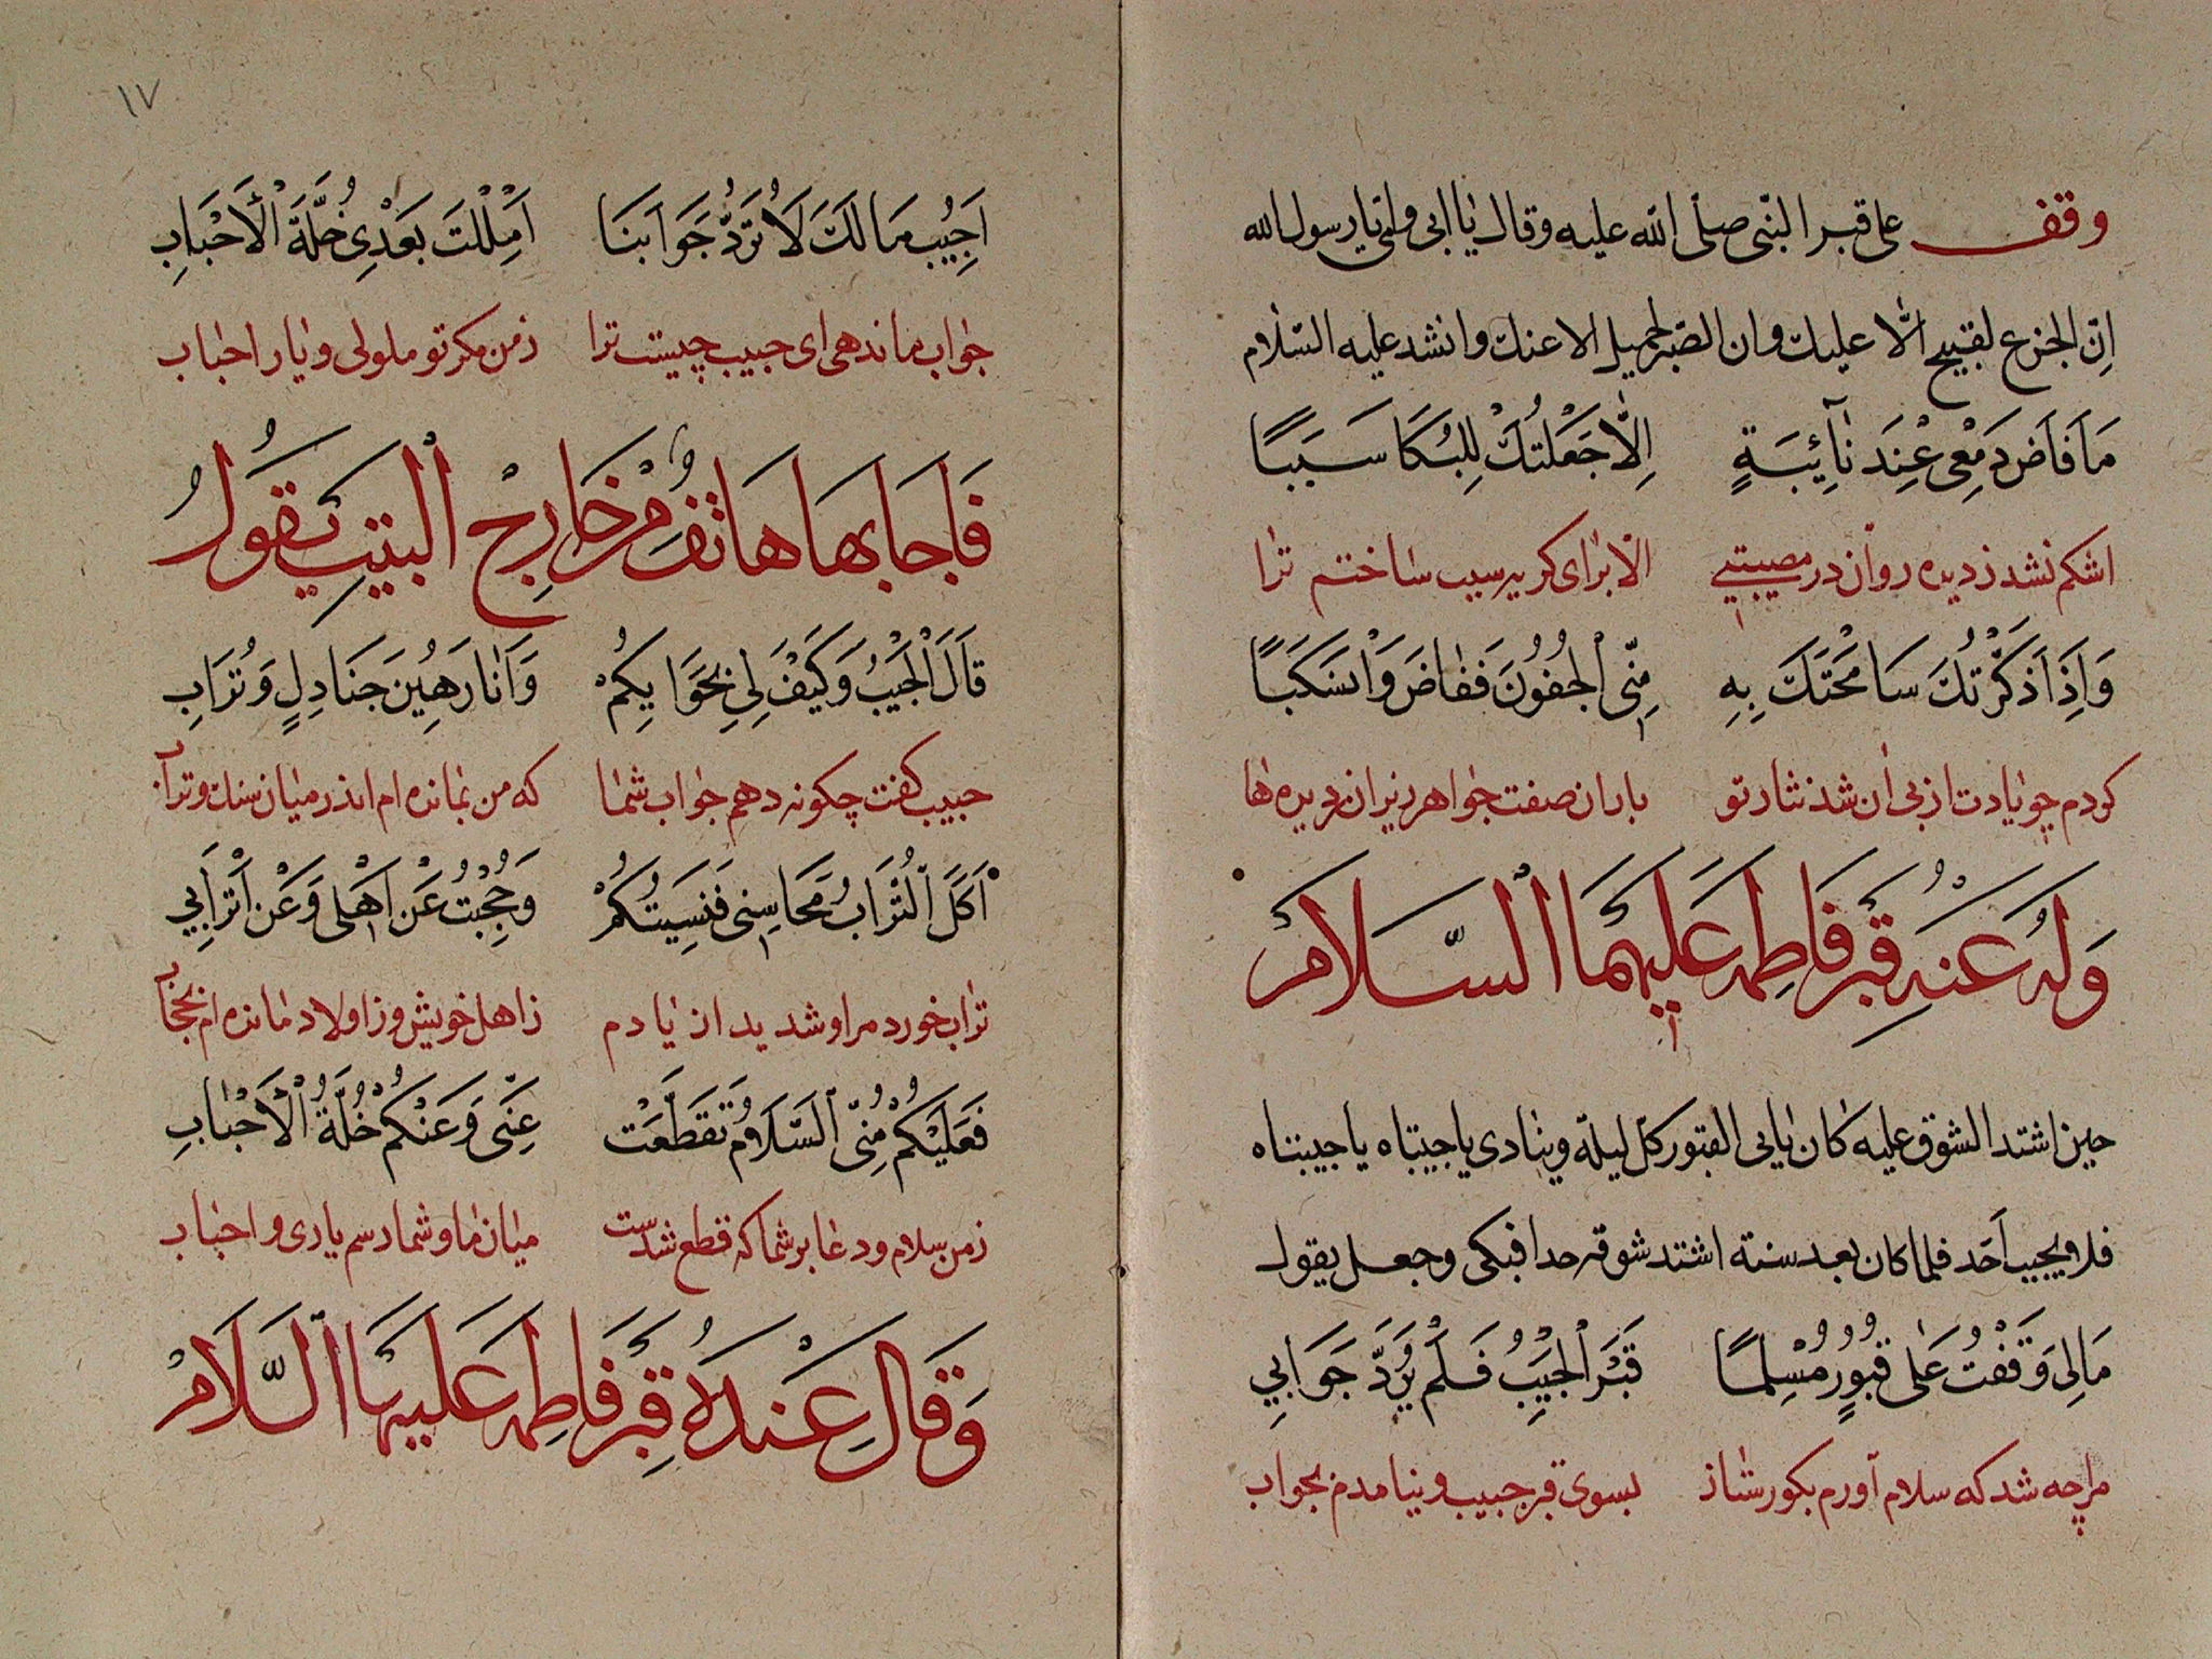 وقف على قبر النبي صلى الله عليه وقال يا ابي وامي يا رسول الله
اِنّ الجزع لقبيح الّا عليك وان الصبر لجميل الا عنك وانشد عليه السّلام
مَا فَاضَ دَمْعِي عِنْدَ نَآئِبَةٍ اِلّا جَعَلْتُكَ لِلبُكَا سَبَبًا
اشكم نشد ز ديده روان در مصيبتي الا براى كريه سبب ساختم ترا
وَاِذَا ذَكَرْتُكَ سَامَحَتْكَ بِهِ مِنّي الْجُفُونَ فَفَاضَ وَانْسَكَبَا
كردم چو يادت از بى ان شد نثار تو باران صفت جواهر ريزان ديده ها
وَلَهُ عَنْدَ قَبْرِ فَاطِمَة عَلَيهِمَا السَّلَامْ
حين اشتد الشوق عليه كان ياتي القبور كل ليلة وينادى يا حبيبتاه يا حبيبتاه
فلا ويجيب اَحَد فلما كان بعد سنته اشتد شوقه حدا فبكى وجعل يقول
مَالِي وَقَفْتُ عَلٰى قُبُورٍ مُسْلِمًا قَبْرَ الْحَبِيبِ فَلَمْ يَرُدَّ جَوَابِي
مرا چه شد كه سلام آورم بكورستان بسوى قبر حبيب و نيامدم بجواب
١٧
اَحَبِيبُ مَا لَكَ لَا تَرُدُّ جَوَابَنَا اَمَلِلْتَ بَعْدِي خُلَّةَ الْاَحْبَابِ
جواب ما ندهى اى حبيب چيست ترا ز من مكر تو ملولى و يار احباب
فَاَجَابَهَا هَاتِفٌ مِنْ خَارِجِ الْبَيْتِ يَقُولُ
قَالَ الْحَبِيبُ وَكَيْفَ لِي بِجَوَابِكُمْ وَاَنَا رَهِينَ جَنَادِلٍ وَتُرَابِ
حبيب كفت چكونه دهم جواب شما كه من بمانده ام اندر ميان سنك و تراب
اَكَلَ التُّرَابُ مَحَاسِنِي فَنَسِيتُكُمْ وَحُجِبْتُ عَنْ اَهْلِي وَعَنْ اَتْرَابِي
تراب خورد مرا و شديد از يادم ز اهل خويش و ز اولاد مانده ام بحجاب
فَعَلَيْكُمْ مِنِّي السَّلَامُ تَقَطَّعَتْ عِنِّي وَعَنْكُمْ خُلَّةُ الْاَحْبَابِ
ز من سلام و دعا بر شما كه قطع شدست ميان ما و شما رسم يارى و احباب
وَقَالَ عِنْدَهُ قَبْرِ فَاطِمَة عَلَيهَا السَّلَامْ